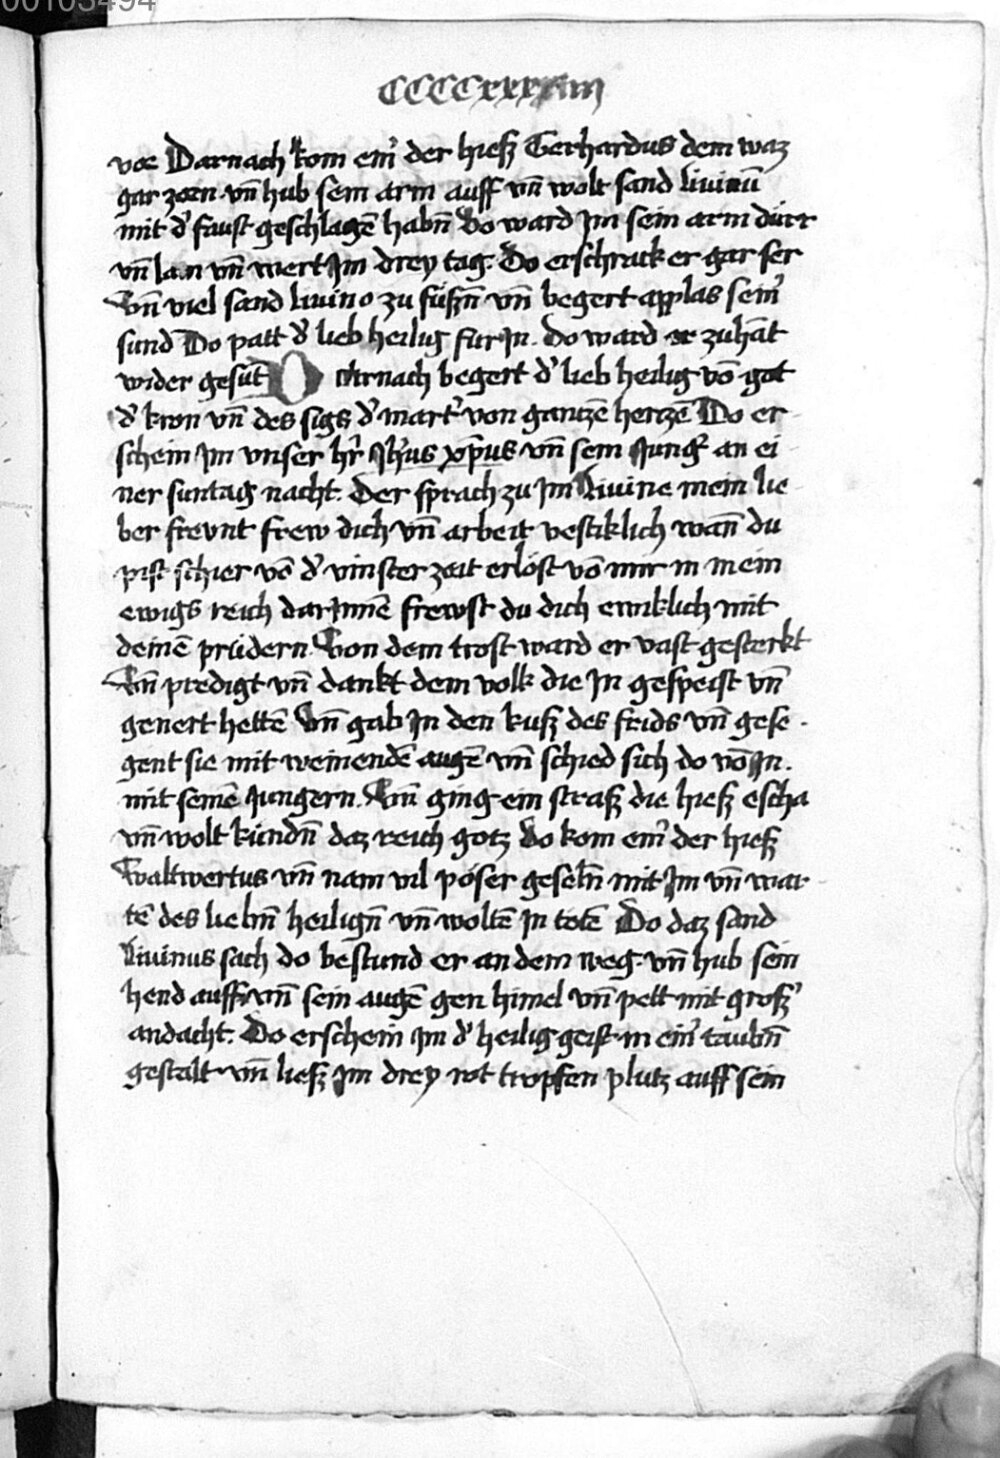 00103494
CCCCxxxiiii
vor Darnach kom einˀ der hiesz Gerhardus dem waz
gar zorn vn̄ hub sein arm auff vn̄ wolt sand liuinū
mit dˀ faust geschlagē habn̄ Do ward Jm sein arm dürr
vn̄ lam vn̄ wert Jm drey tag. Do erschrack er gar ser
Vn̄ viel sand liuino zu füszn̄ vn̄ begert applas seinˀ
sund Do patt dˀ lieb heilig für Jn. do ward er zuhāt
wider gesūt Darnach begert dˀ lieb heilig vō got
dˀ kron vn̄ des sigs dˀ martˀ von gantzē hertzē Do er
schein im vnser hˀr Jh̄us xp̄us vn̄ sein Jungˀ an ei
ner suntag nacht. Der sprach zu im Liuine mein lie
ber frevnt frew dich vn̄ arbeit vestiklich wan̄ du
pist schier vō dˀ vinster zeit erlöst vō mir in mein
ewigs reich dar Jnnē frewst du dich ewiklich mit
deinē prüdern. Von dem trost ward er vast gesterkt
Vn̄ predigt vn̄ dankt dem volk die Jn gespeist vn̄
genert hettē Vn̄ gab Jn den kusz des frids vn̄ gese
gent sie mit weinendē augē vn̄ schied sich do vō Jn.
mit seinē Jungern. Vn̄ ging ein strasz die hiesz escha
vn̄ wolt kündn̄ daz reich gotz Do kom einˀ der hiesz
Waltwertus vn̄ nam vil pöser geseln̄ mit Jm vn̄ war
tē des liebn̄ heilign̄ vn̄ woltē Jn totē Do daz sand
Liuinus sach do bestund er an dem weg. vn̄ hub sein
hend auff vn̄ sein augē gen himel vn̄ pett mit groszˀ
andacht. Do erschein im dˀ heilig geist in einˀ taubn̄
gestalt vn̄ liesz Jm drey rot tropfen plutz auff sein